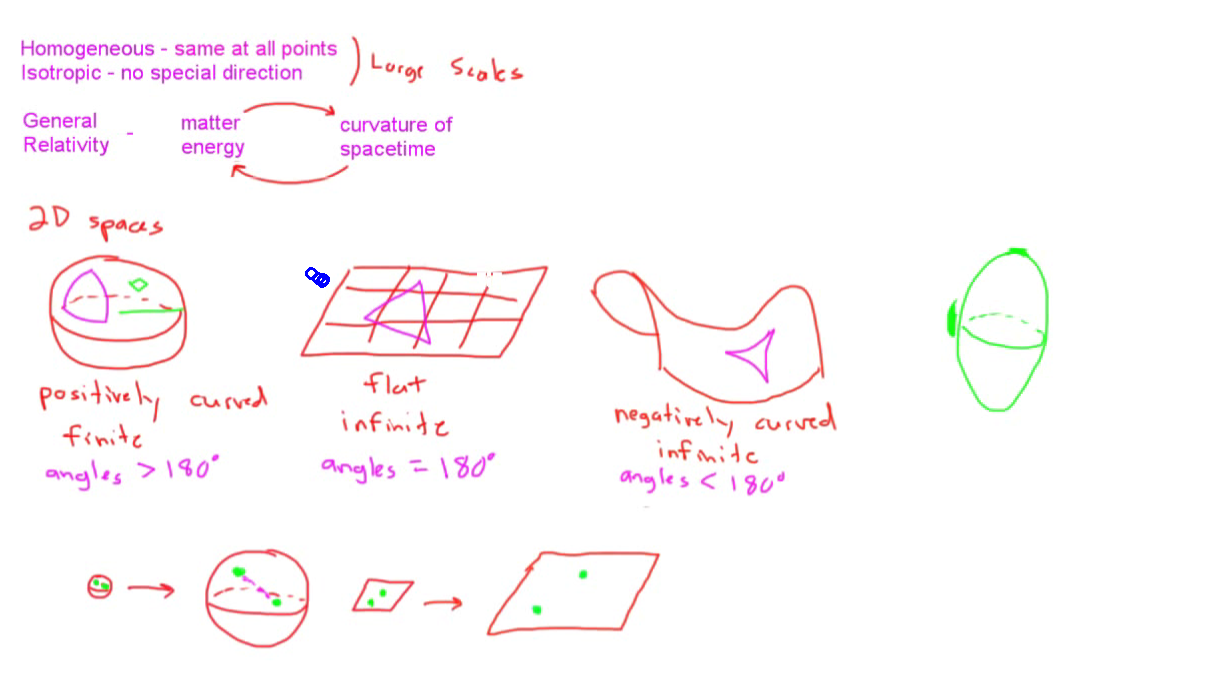 Homogeneous - same at all points
Isotropic - no special direction
Large Scales
General
Relativity
-
matter
energy
curvature of
spacetime
2D spaces
positively curved
finite
angles > 180°
flat
infinite
angles = 180°
negatively curved
infinite
angles < 180°